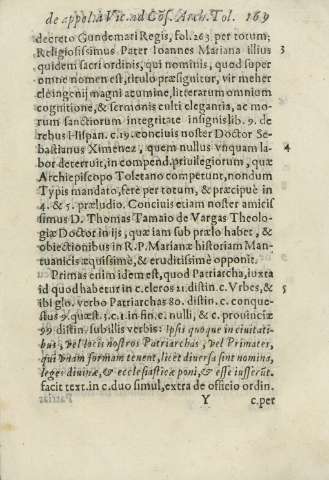 de appellā Vic. ad Cōs. Arch. Tol. 169
decreto Gundemari Regis, fol. 263. per totum;
Religiosissimus Pater Ioannes Mariana illius 3
quidem sacri ordinis, qui nominis, quod super
omne nomen est, titulo præsignitur, vir meher
cle ingenij magni acumine, litterarum omnium
cognitione, & sermonis culti elegantia, ac mo-
rum sanctiorum integritate insignis lib. 9. de
rebus Hispan. c. 19. conciuis noster Doctor Se-
bastianus Ximenez, quem nullus vnquam la- 4
bor deterruit, in compend. priuilegiorum, quæ
Archiepiscopo Toletano competunt, nondum
Typis mandato, ferè per totum, & præcipuè in
4. & 5. præludio. Conciuis etiam noster amicis
simus D. Thomas Tamaio de Vargas Theolo-
giæ Doctor in ijs, quæ iam sub prælo habet, &
obiectionibus in R. P. Marianæ historiam Man-
tuanicis æquissimè, & eruditissimè opponit.
Primas etim idem est, quod Patriarcha, iuxta
id quod habetur in c. cleros 21. distin. c. Vrbes, & 5
ibi glo. verbo Patriarchas 80. distin. c. conque-
stus 9. quæst. 3. c. 1. in fin. c. nulli, & c. prouinciæ
99. distin. sub illis verbis: Ipsi quoque in ciuitati-
bus, vel locis nostros Patriarchas, vel Primates,
qui vnam formam tenent, licèt diuersa sint nomina,
leges diuinæ, & ecclesiasticæ poni, & esse iusserūt.
facit text. in c. duo simul, extra de officio ordin.
Y c. per